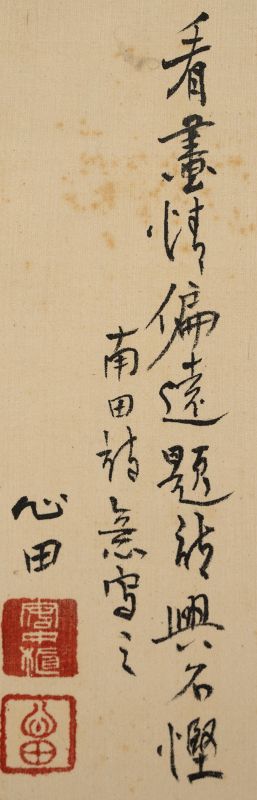 看畫情偏遠題詩興不慳
南田詩意寫之
心田
心田